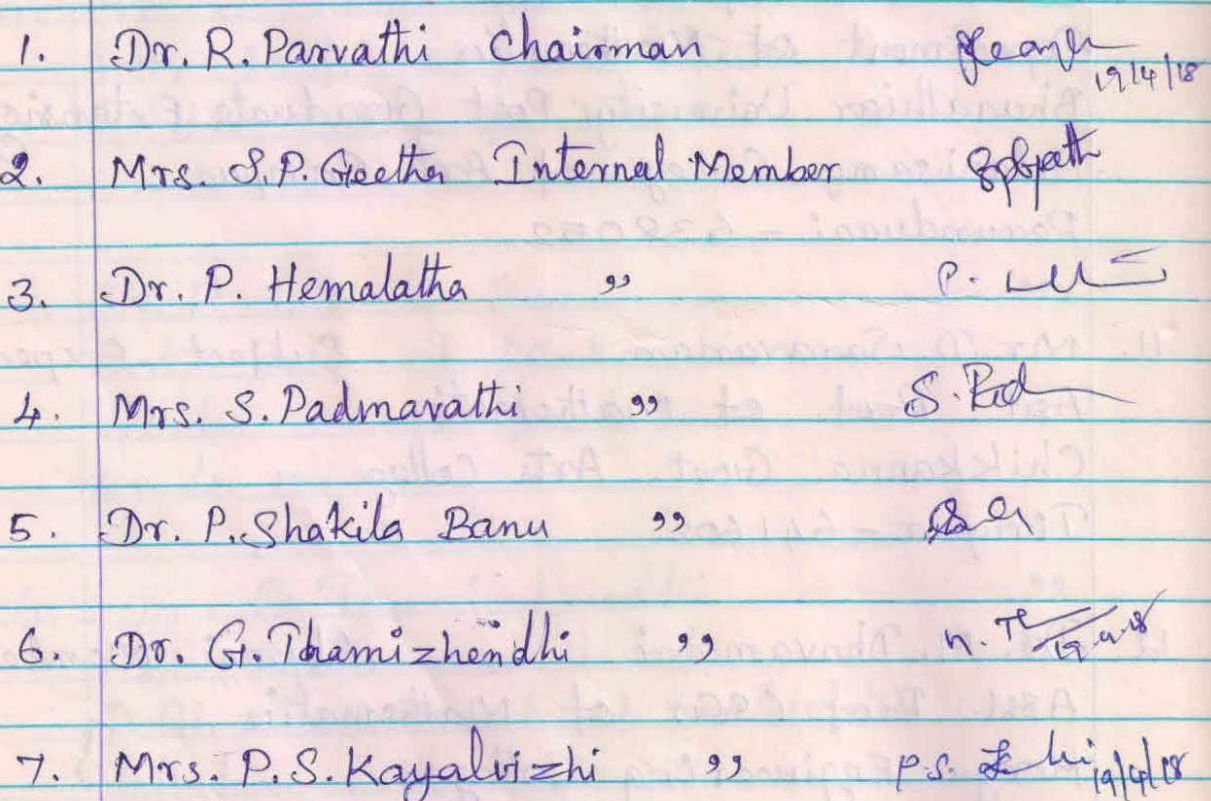 1. Dr. R. Parvathi Chairman 19/4/18
2. Mrs. S.P. Geetha Internal Member
3. Dr. P. Hemalatha "
4. Mrs. S. Padmavathi " S. Pad
5. Dr. P. Shakila Banu "
6. Dr. G. Thamizhendhi "
7. Mrs. P. S. Kayalvizhi " P.S. 19/4/18